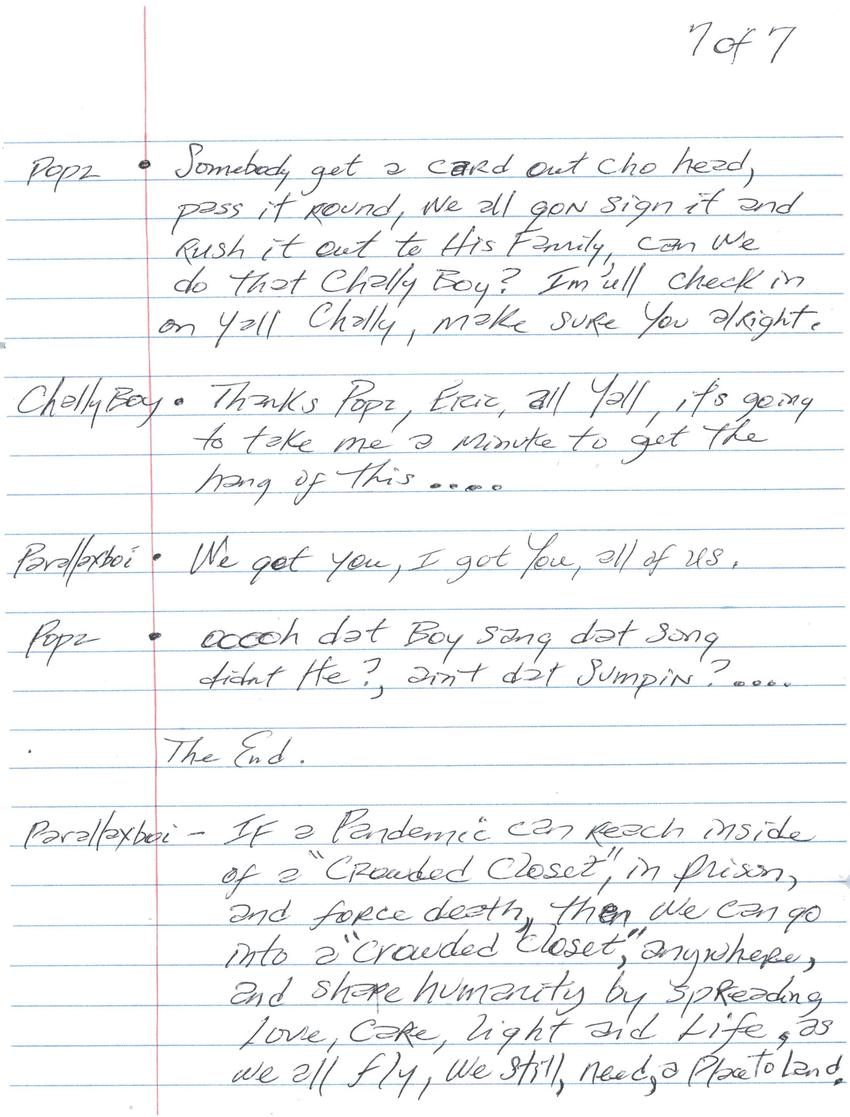 7 of 7
Popz • Somebody get a card out cho head,
pass it round, We all gon sign it and
Rush it out to His Family, can We
do that Chally Boy? Im'ull check in
on Yall Chally, make sure You alright.
Chally Boy • Thanks Popz, Eric, all Yall, it's going
to take me a minute to get the
hang of this ....
Parallaxboi • We got you, I got You, all of us.
Popz • ooooh dat Boy sang dat song
didnt He?, ain't dat Sumpin?....
The End.
Parallaxboi - IF a Pandemic can Reach inside
of a "Crowded Closet", in prison,
and force death, then We can go
into a "Crowded Closet," anywhere,
and share humanity by spreading
Love, Care, Light and Life, as
we all fly, We still, need, a Place to Land.